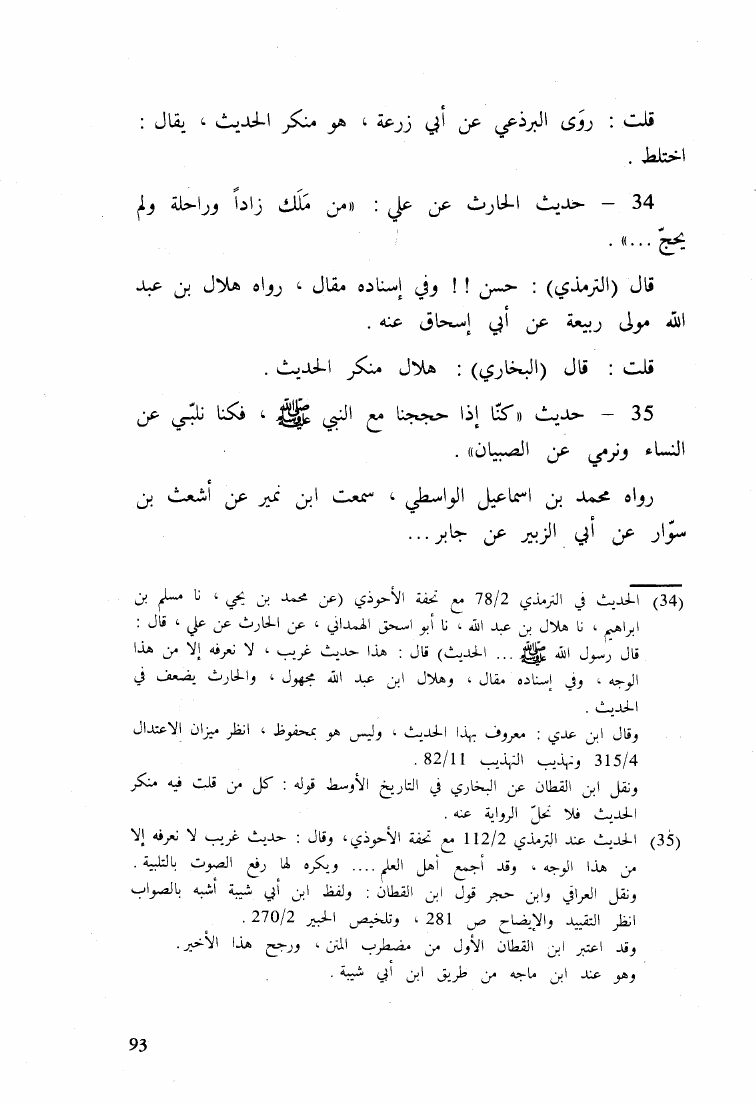 قلت : روَى البرذعي عن أبي زرعة ، هو منكر الحديث ، يقال :
اختلط .
34 – حديث الحارث عن علي : «من مَلَك زاداً وراحلة ولم
يحجّ ...» .
قال (الترمذي) : حسن !! وفي إسناده مقال ، رواه هلال بن عبد
الله مولى ربيعة عن أبي إسحاق عنه .
قلت : قال (البخاري) : هلال منكر الحديث .
35 – حديث «كنّا إذا حججنا مع النبي ﷺ ، فكنا نلبّي عن
النساء ونرمي عن الصبيان» .
رواه محمد بن اسماعيل الواسطي ، سمعت ابن نمير عن أشعث بن
سوّار عن أبي الزبير عن جابر...
(34) الحديث في الترمذي 78/2 مع تحفة الأحوذي (عن محمد بن يحي ، نا مسلم بن
ابراهيم ، نا هلال بن عبد الله ، نا أبو اسحق الهمداني ، عن الحارث عن علي ، قال :
قال رسول الله ﷺ ... الحديث) قال : هذا حديث غريب ، لا نعرفه إلا من هذا
الوجه ، وفي إسناده مقال ، وهلال ابن عبد الله مجهول ، والحارث يضعف في
الحديث .
وقال ابن عدي : معروف بهذا الحديث ، وليس هو بمحفوظ ، انظر ميزان الاعتدال
315/4 وتهذيب التهذيب 82/11 .
ونقل ابن القطان عن البخاري في التاريخ الأوسط قوله : كل من قلت فيه منكر
الحديث فلا تحلّ الرواية عنه .
(35) الحديث عند الترمذي 112/2 مع تحفة الأحوذي، وقال : حديث غريب لا نعرفه إلا
من هذا الوجه ، وقد أجمع أهل العلم .... ويكره لها رفع الصوت بالتلبية .
ونقل العراقي وابن حجر قول ابن القطان : ولفظ ابن أبي شيبة أشبه بالصواب
انظر التقييد والايضاح ص 281 ، وتلخيص الحبير 270/2 .
وقد اعتبر ابن القطان الأول من مضطرب المتن ، ورجح هذا الأخير.
وهو عند ابن ماجه من طريق ابن أبي شيبة .
93